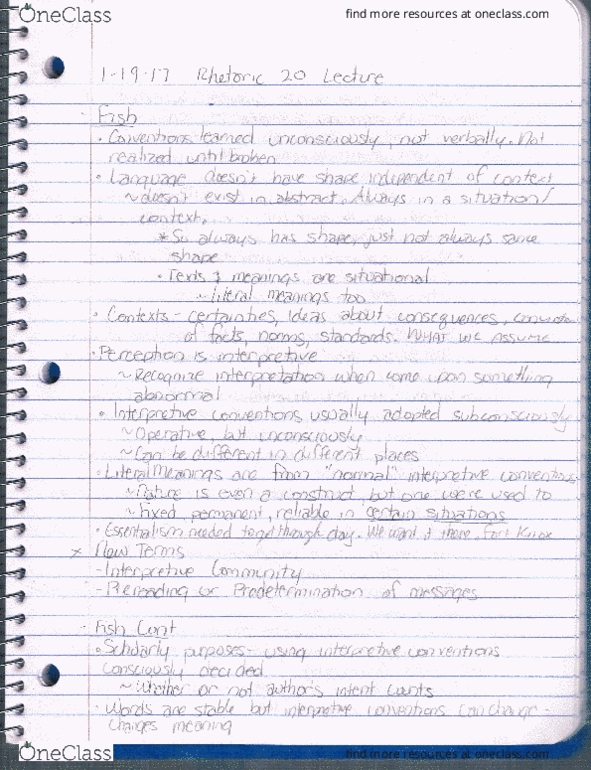 OneClass
find more resources at oneclass.com
1-19-17 Rhetoric 20 Lecture
- Fish
• Conventions learned unconsciously, not verbally. Not
realized until broken
• Language doesn't have shape independent of context
~ doesn't exist in abstract. Always in a situation/
context.
* So always has shape, just not always same
shape
• Texts & meanings are situational
~ literal meanings too
• Contexts - certainties, ideas about consequences,
of facts, norms, standards. WHAT WE ASSUME
• Perception is interpretive
~ Recognize interpretation when come upon something
abnormal
• Interpretive conventions usually adopted subconsciously
~ Operative, but unconsciously
~ Can be different in different places
• Literal meanings are from "normal" interpretive conventions
~ Nature is even a construct, but one we're used to
~ Fixed, permanent, reliable in certain situations
• Essentialism needed to get through day. We want it there. Fort Knox
* New Terms
- Interpretive Community
- Prereading or Predetermination of messages
- Fish Cont
• Scholarly purposes - using interpretive conventions
consciously decided
~ Whether or not author's intent counts
• Words are stable but interpretive conventions can change -
changes meaning
OneClass
find more resources at oneclass.com